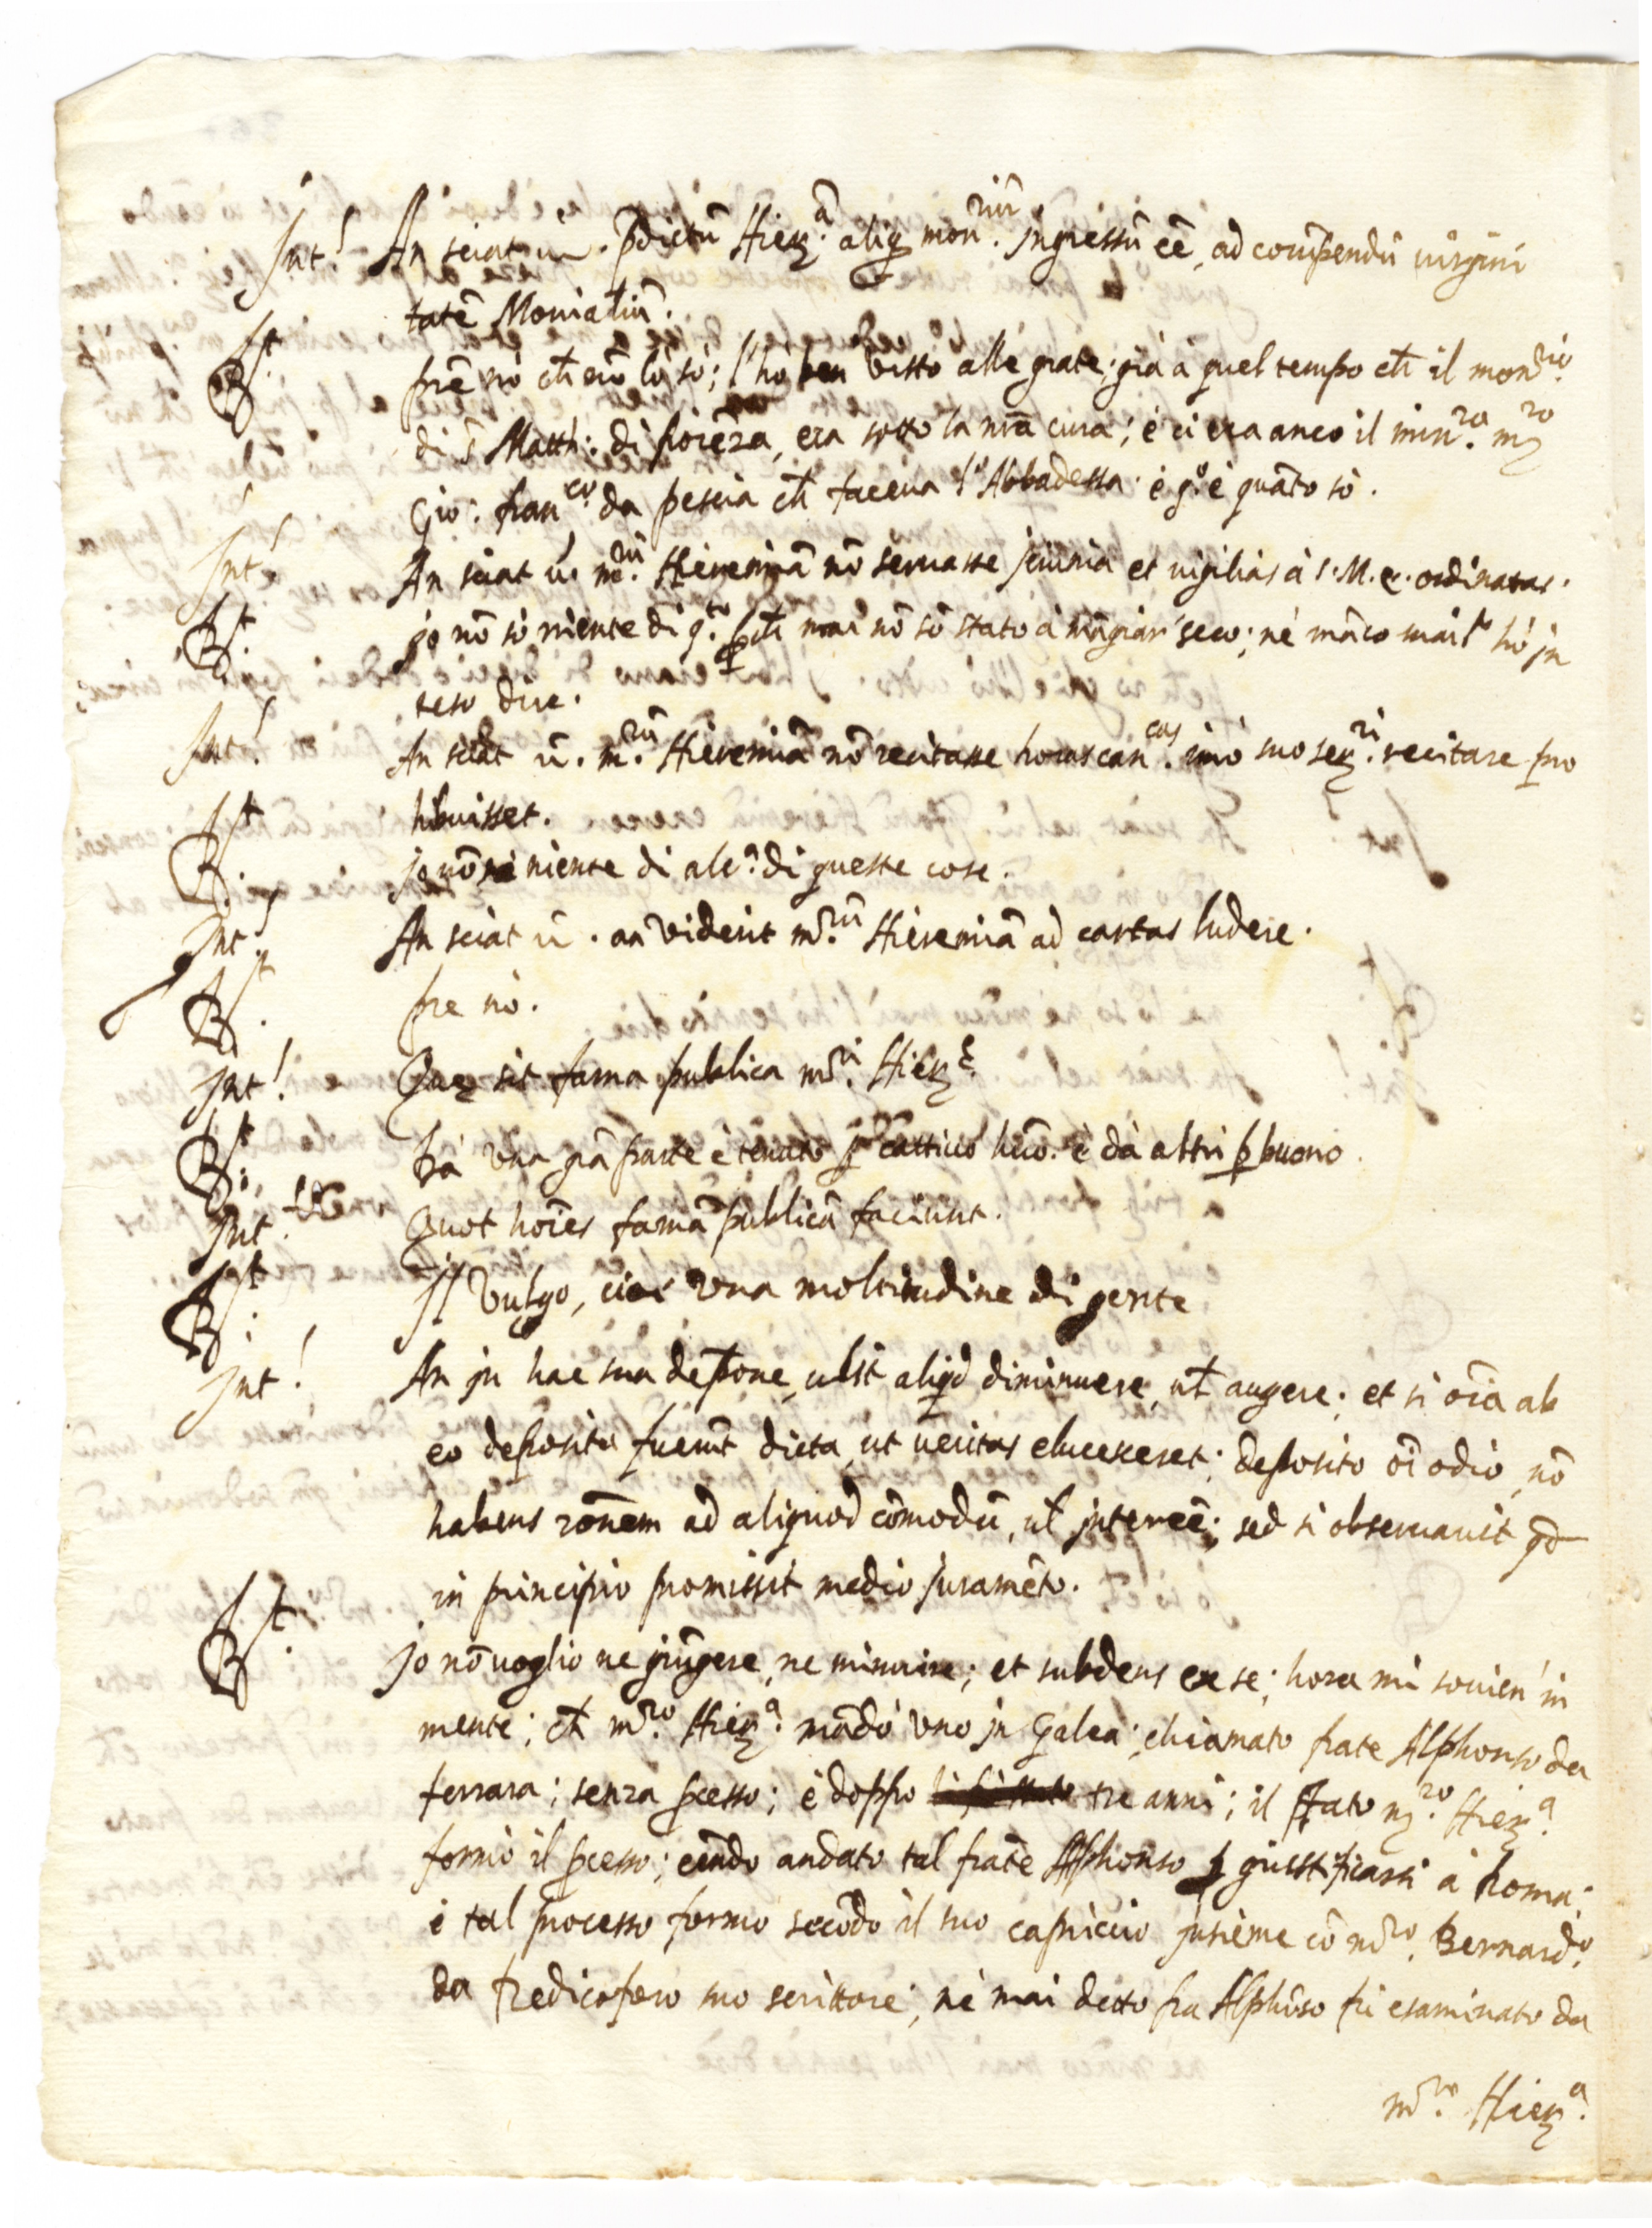 Int! An sciat ũ. p̃dictũ Hierᵃ̃. aliqᵈ monʳⁱũ. ingressũ eẽ, ad corrũpendũ virgini
tatẽ Monialiũ.
Rˢᵗ. prẽ nò ch̃ nõ lo sò; l'hò ben visto alle grate; già à quel tempo ch̃ il monʳⁱᵒ.
di S̃ Matth: di fiorẽza, era sotto la nr̃a cura; è ci era anco il minʳᵒ. mʳᵒ
Gio: franᶜᵒ. da pescia ch̃ faceua l'Abbadessa. è qᵒ. è quãto sò.
Int! An sciat ũ. mʳũ. Hieremiã nõ seruasse jeiunia et vigilias à S. M. E. ordinatas.
Rˢᵗ. jo nõ sò niente di qᵗᵒ. p̱ch̃ mai nõ sõ stato à mãgiar' seco; nè mãco mai l'hò jn
teso dire.
Int! An sciat ũ. mʳũ. Hieremiã nõ recitasse horas canᶜᵃˢ. imò suo serʳⁱ. recitare pro
hibuisset.
Rˢᵗ. jo nõ sò niente di alcᵃ. di queste cose.
Int! An sciat ũ. an viderit mʳũ. Hieremiã ad cartas ludere.
Rˢᵗ. pre nò.
Int! Quę sit fama publica mʳⁱ. Hierᵉ.
Rˢᵗ. Da una grã parte è tenuto p̱ cattiuo huõ. è dà altri p̱ buono.
Int! Quot hoĩes famã publicã faciunt.
Rˢᵗ. Il Vulgo, cioè una moltitudine di gente.
Int! An jn hac sua depõne, velit aliqd diminuere, ut̃ augere; et si oĩa ab
eo deposita fuerũt dicta, ut ueritas elucesceret; deposito oĩ odio, nõ
habens rõnem ad aliquod cõmodũ, ut̃ intereẽ; sed si obseruauit qd
in principio promissit medio juramẽto.
Rˢᵗ. jo nõ uoglio ne giũgere, ne minuire; et subdens ex se; hora mi souien' in
mente; ch̃ mʳᵒ. Hierᵃ. mãdò uno jn Galea; chiamato frate Alphonso da
ferrara; senza p̱cesso; è doppo tre anni; il p̃fato mʳᵒ. Hierᵃ.
formò il p̱cesso; eẽndo andato tal frate Alphonso p̱ giustificarsi à Roma;
è tal processo formò secõdo il suo capriccio jnsieme cõ mʳᵒ. Bernardᵒ.
da fredicoforo suo scrittore; nè mai detto fra Alphõso fù esaminato da
mʳᵒ. Hierᵃ.